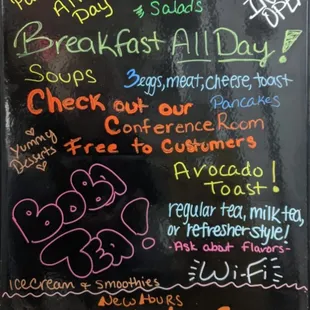 All
Day
& Salads
OPEN
Breakfast All Day!
Soups
3eggs, meat, cheese, toast
Pancakes
Check out our
Conference Room
Free to Customers
Yummy
Desserts
Avocado
Toast!
BOBA
TEA!
regular tea, milk tea,
or refresher-style!
-Ask about flavors-
Wi-Fi
ice cream & smoothies
New Hours